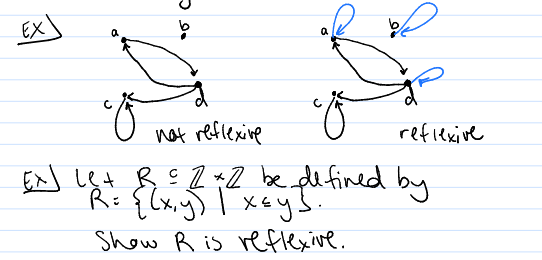 EX)
a b a b
c d c d
not reflexive reflexive
EX) Let R ⊆ ℤ × ℤ be defined by
R = {(x,y) | x ≤ y}.
Show R is reflexive.